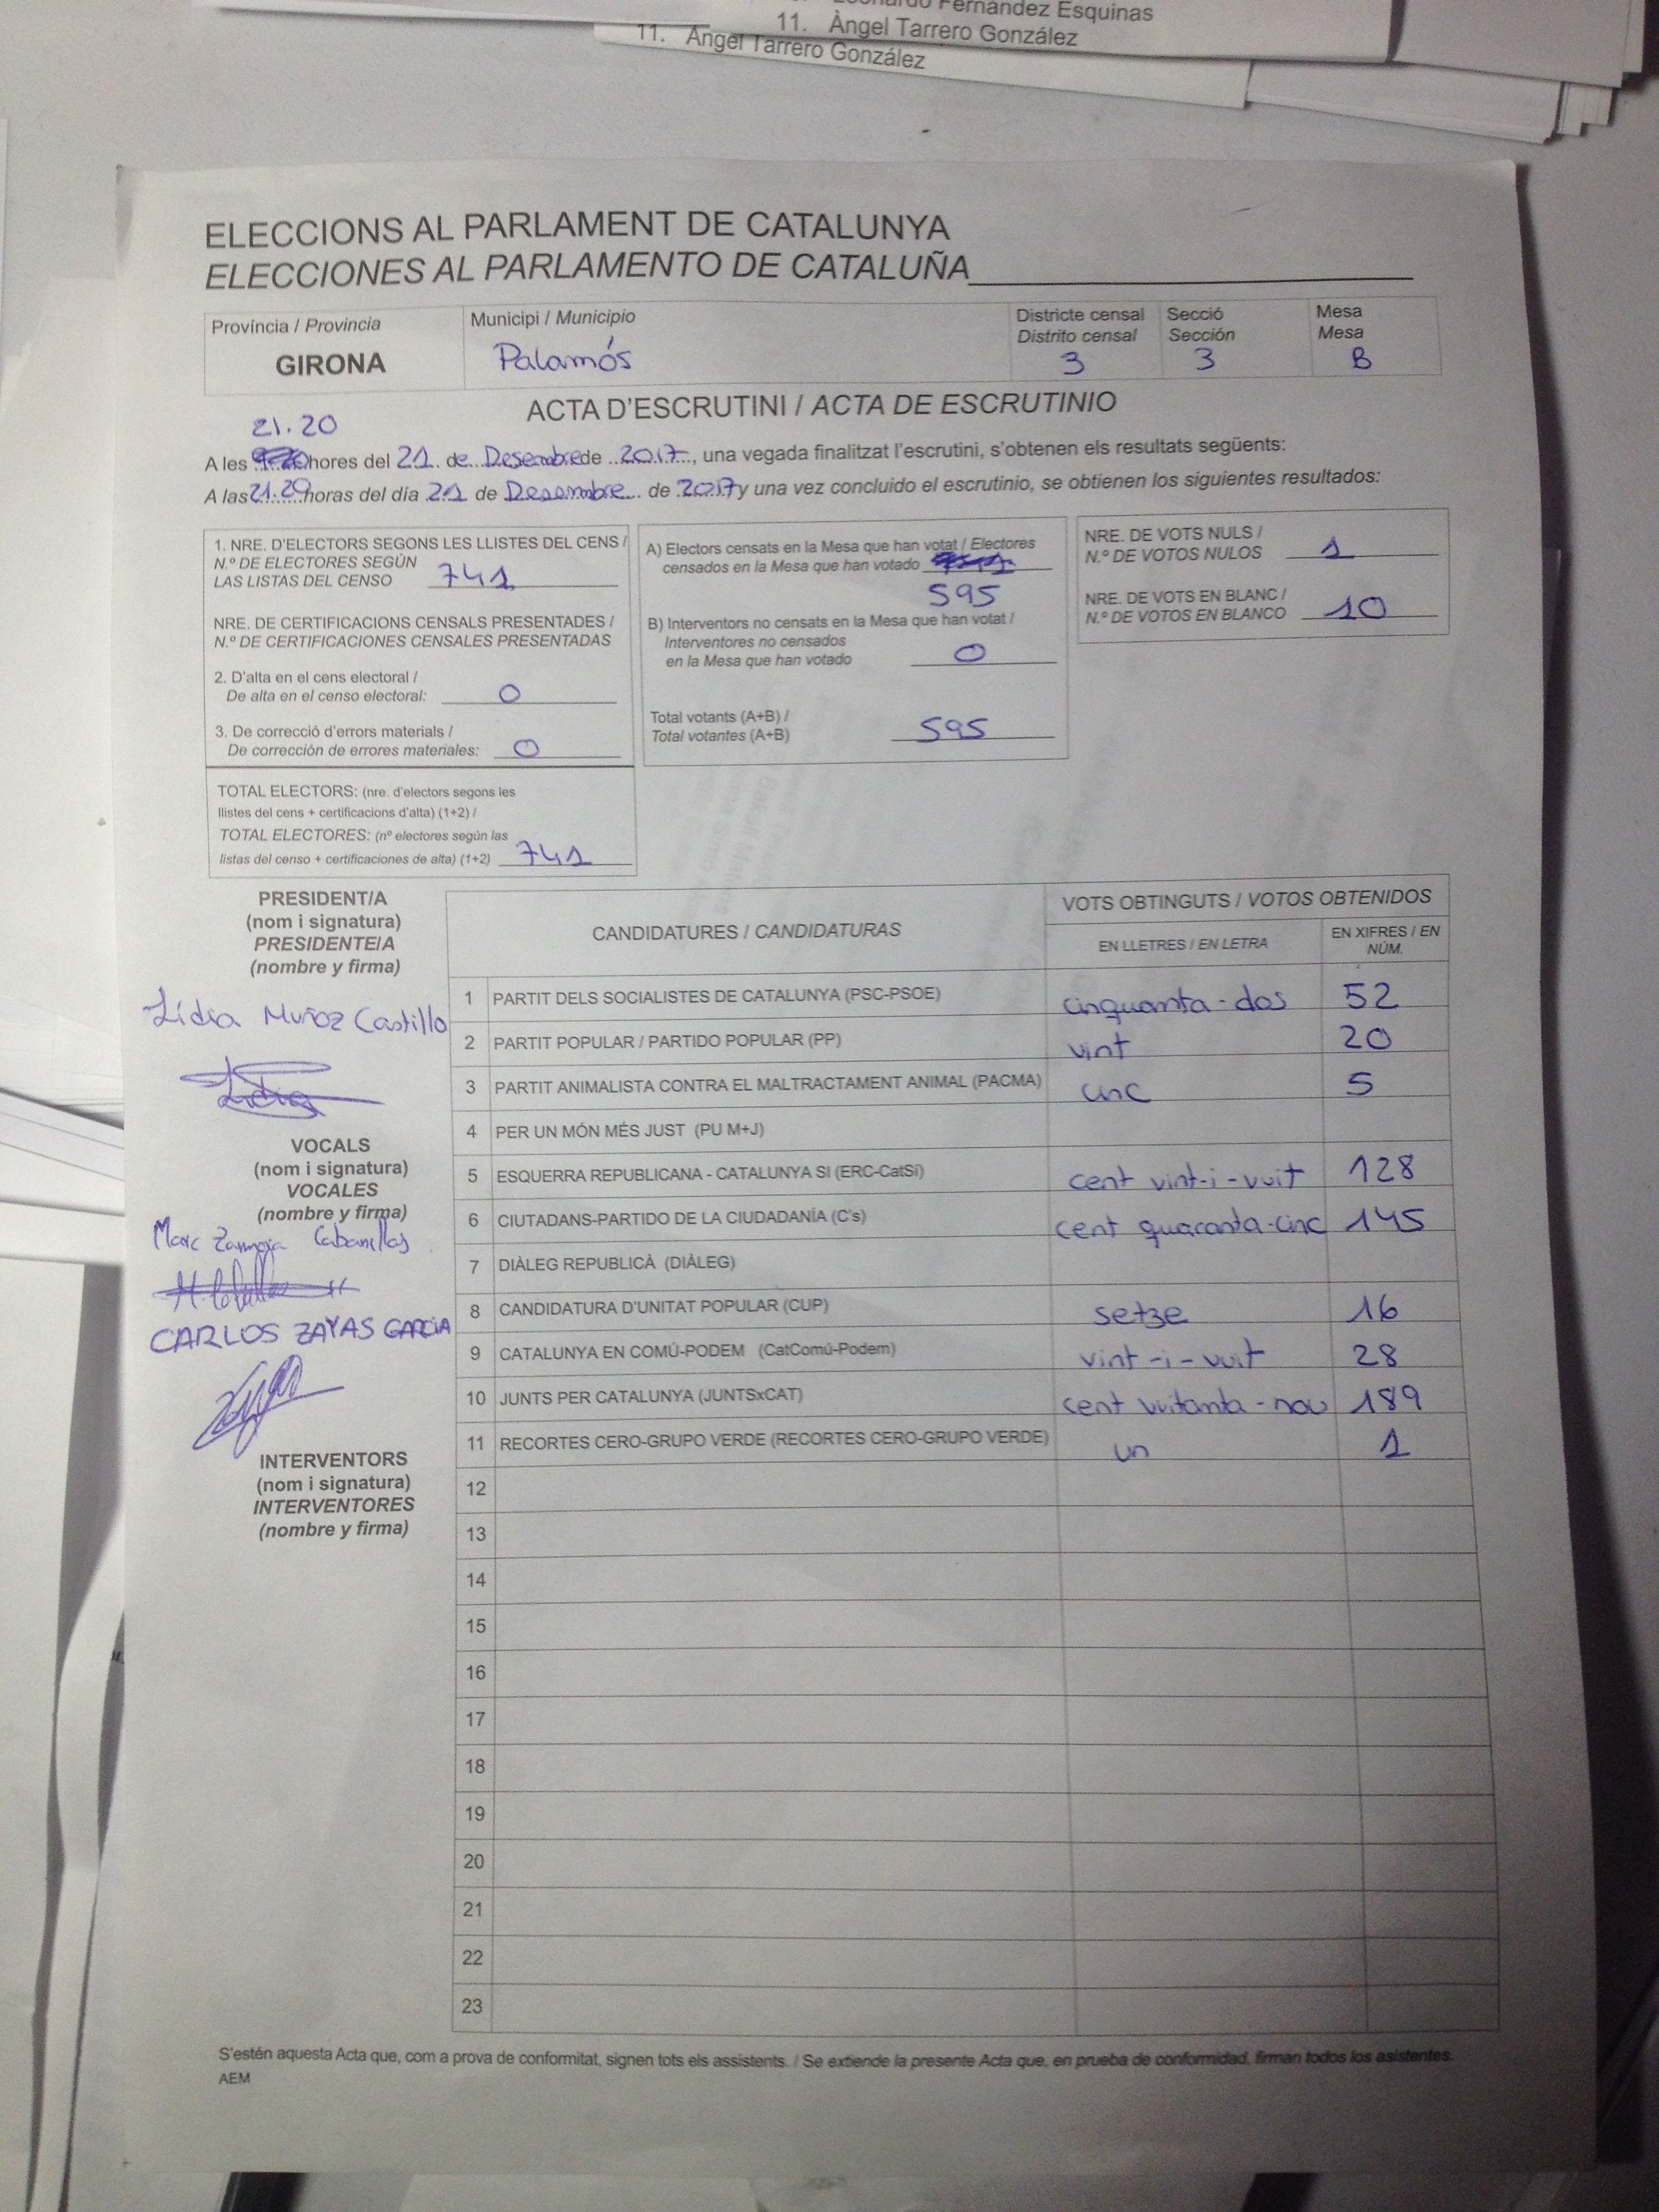 Fernández Esquinas
11. Àngel Tarrero González
11. Àngel Tarrero González
ELECCIONS AL PARLAMENT DE CATALUNYA
ELECCIONES AL PARLAMENTO DE CATALUÑA
Província / Provincia
GIRONA
Municipi / Municipio
Palamós
Districte censal
Distrito censal
3
Secció
Sección
3
Mesa
Mesa
B
ACTA D'ESCRUTINI / ACTA DE ESCRUTINIO
21.20
A les hores del 21 de Desembre de 2017, una vegada finalitzat l'escrutini, s'obtenen els resultats següents:
A las 21.20 horas del día 21 de Desembre de 2017 y una vez concluido el escrutinio, se obtienen los siguientes resultados:
1. NRE. D'ELECTORS SEGONS LES LLISTES DEL CENS /
N.º DE ELECTORES SEGÚN
LAS LISTAS DEL CENSO 741
NRE. DE CERTIFICACIONS CENSALS PRESENTADES /
N.º DE CERTIFICACIONES CENSALES PRESENTADAS
2. D'alta en el cens electoral /
De alta en el censo electoral: 0
3. De correcció d'errors materials /
De corrección de errores materiales: 0
TOTAL ELECTORS: (nre. d'electors segons les
llistes del cens + certificacions d'alta) (1+2) /
TOTAL ELECTORES: (nº electores según las
listas del censo + certificaciones de alta) (1+2) 741
A) Electors censats en la Mesa que han votat / Electores
censados en la Mesa que han votado
595
B) Interventors no censats en la Mesa que han votat /
Interventores no censados
en la Mesa que han votado 0
Total votants (A+B) /
Total votantes (A+B) 595
NRE. DE VOTS NULS /
N.º DE VOTOS NULOS 1
NRE. DE VOTS EN BLANC /
N.º DE VOTOS EN BLANCO 10
PRESIDENT/A
(nom i signatura)
PRESIDENTE/A
(nombre y firma)
Lídia Muñoz Castillo
Lidia
VOCALS
(nom i signatura)
VOCALES
(nombre y firma)
Marc Zamora Cabanillas
CARLOS ZAYAS GARCIA
INTERVENTORS
(nom i signatura)
INTERVENTORES
(nombre y firma)
CANDIDATURES / CANDIDATURAS
VOTS OBTINGUTS / VOTOS OBTENIDOS
EN LLETRES / EN LETRA
EN XIFRES / EN
NÚM.
1 PARTIT DELS SOCIALISTES DE CATALUNYA (PSC-PSOE) cinquanta-dos 52
2 PARTIT POPULAR / PARTIDO POPULAR (PP) vint 20
3 PARTIT ANIMALISTA CONTRA EL MALTRACTAMENT ANIMAL (PACMA) cinc 5
4 PER UN MÓN MÉS JUST (PU M+J)
5 ESQUERRA REPUBLICANA - CATALUNYA SI (ERC-CatSí) cent vint-i-vuit 128
6 CIUTADANS-PARTIDO DE LA CIUDADANÍA (C's) cent quaranta-cinc 145
7 DIÀLEG REPUBLICÀ (DIÀLEG)
8 CANDIDATURA D'UNITAT POPULAR (CUP) setze 16
9 CATALUNYA EN COMÚ-PODEM (CatComú-Podem) vint-i-vuit 28
10 JUNTS PER CATALUNYA (JUNTSxCAT) cent vuitanta-nou 189
11 RECORTES CERO-GRUPO VERDE (RECORTES CERO-GRUPO VERDE) un 1
12
13
14
15
16
17
18
19
20
21
22
23
S'estén aquesta Acta que, com a prova de conformitat, signen tots els assistents. / Se extiende la presente Acta que, en prueba de conformidad, firman todos los asistentes.
AEM